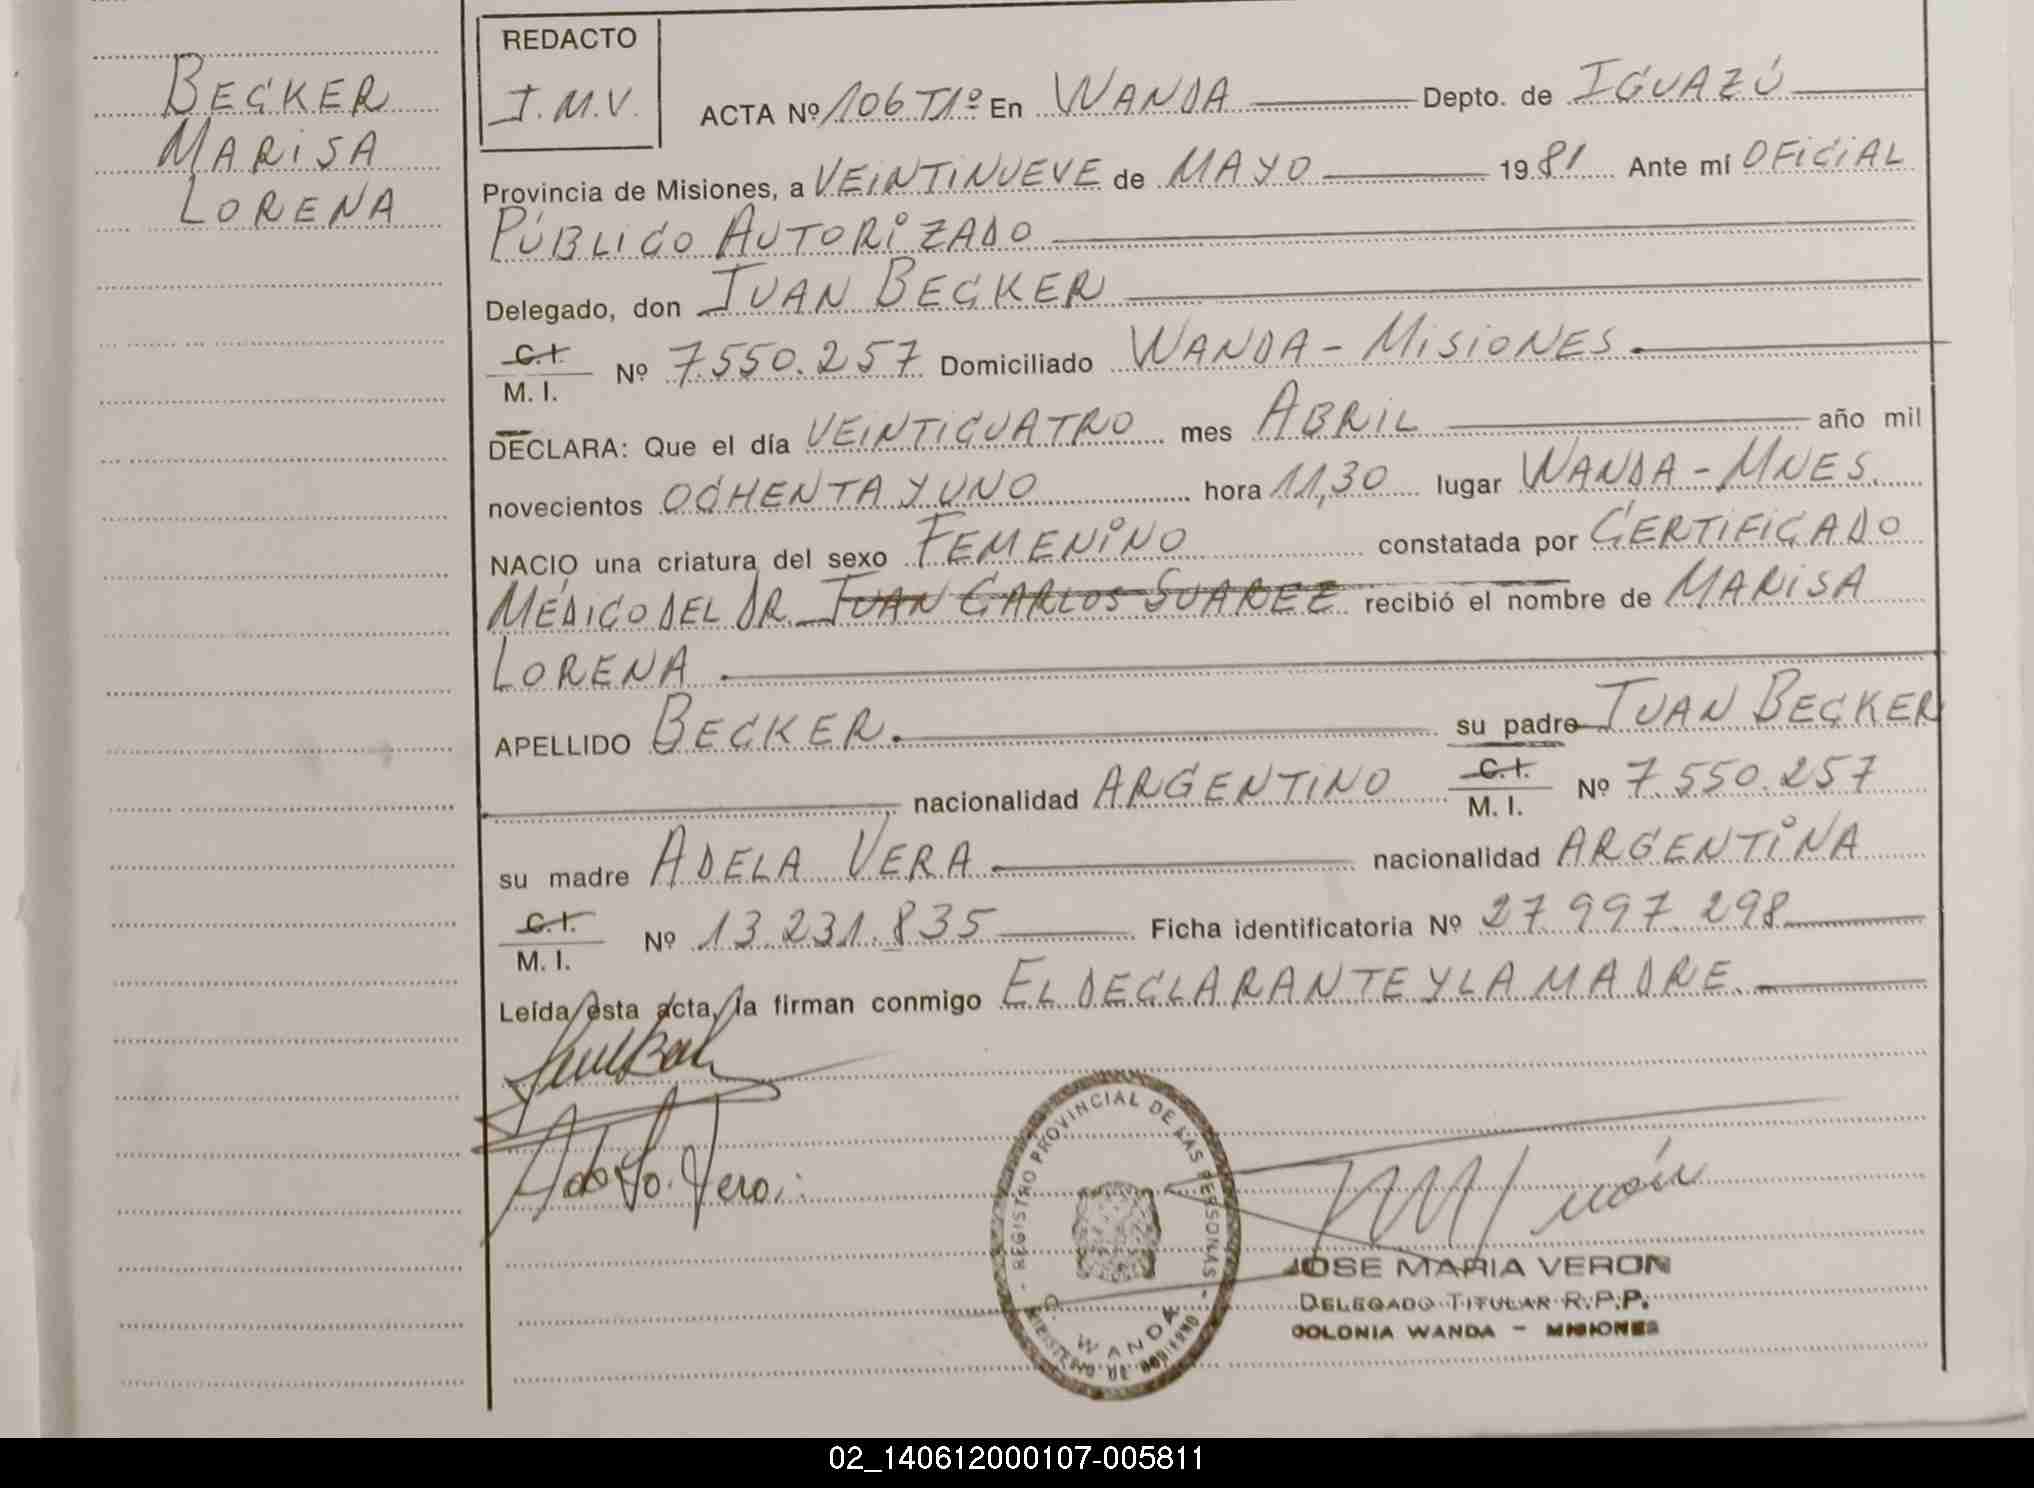 BECKER
MARISA
LORENA
REDACTO
J.M.V.
ACTA Nº 106 T1º En WANDA Depto. de IGUAZÚ
Provincia de Misiones, a VEINTINUEVE de MAYO 1981 Ante mí OFICIAL
PÚBLICO AUTORIZADO
Delegado, don JUAN BECKER
C.I.
M. I.
Nº 7.550.257 Domiciliado WANDA - MISIONES.
DECLARA: Que el día VEINTICUATRO mes ABRIL año mil
novecientos OCHENTA Y UNO hora 11,30 lugar WANDA - MNES.
NACIO una criatura del sexo FEMENINO constatada por CERTIFICADO
MÉDICO DEL DR. JUAN CARLOS SUAREZ recibió el nombre de MARISA
LORENA
APELLIDO BECKER. su padre JUAN BECKER
nacionalidad ARGENTINO C.I.
M. I.
Nº 7.550.257
su madre ADELA VERA nacionalidad ARGENTINA
C.I.
M. I.
Nº 13.231.835 Ficha identificatoria Nº 27.997.298
Leída esta acta, la firman conmigo EL DECLARANTE Y LA MADRE.
REGISTRO PROVINCIAL DE LAS PERSONAS
WANDA
MINISTERIO DE GOBIERNO
JOSE MARIA VERON
DELEGADO TITULAR R.P.P.
COLONIA WANDA - MISIONES
02_140612000107-005811